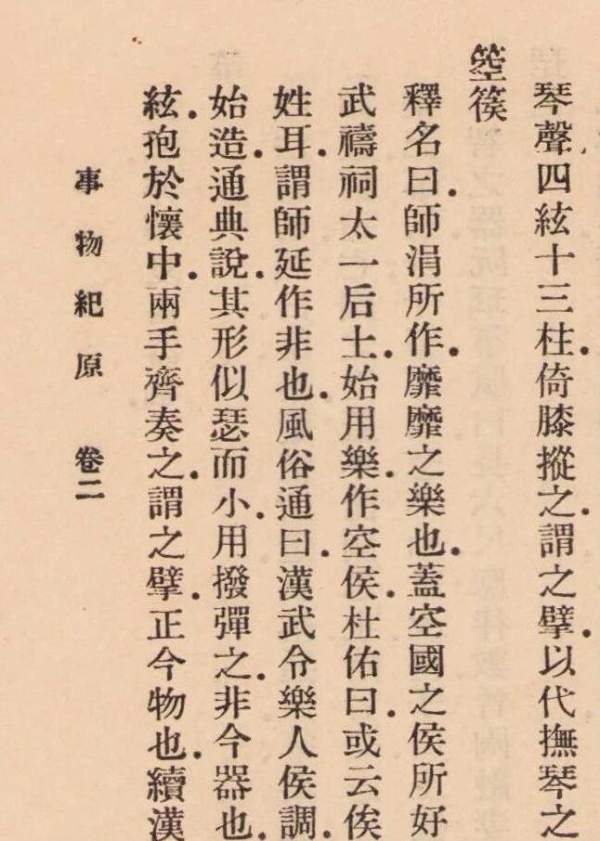 琴聲四絃十三柱倚膝摐之謂之擘以代撫琴之
箜篌
釋名曰師涓所作靡靡之樂也蓋空國之侯所好
武禱祠太一后土始用樂作空侯杜佑曰或云侯
姓耳謂師延作非也風俗通曰漢武令樂人侯調
始造通典說其形似瑟而小用撥彈之非今器也
絃孢於懷中兩手齊奏之謂之擘正今物也續漢
事物紀原 卷二